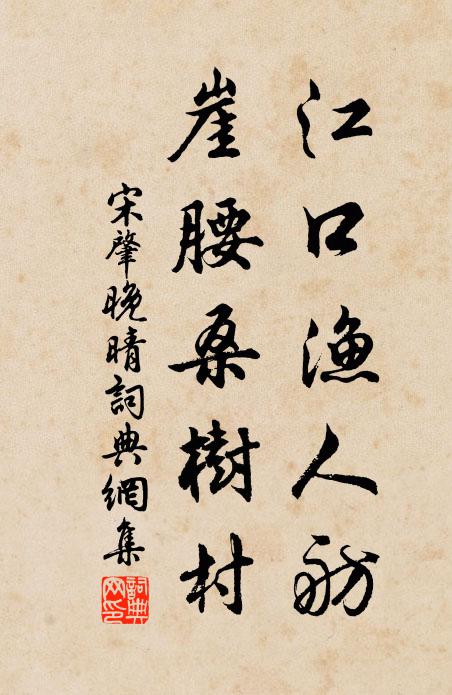 江口漁人舫
崖腰桑樹村
宋肇晚晴詞典網集
詞典
网印